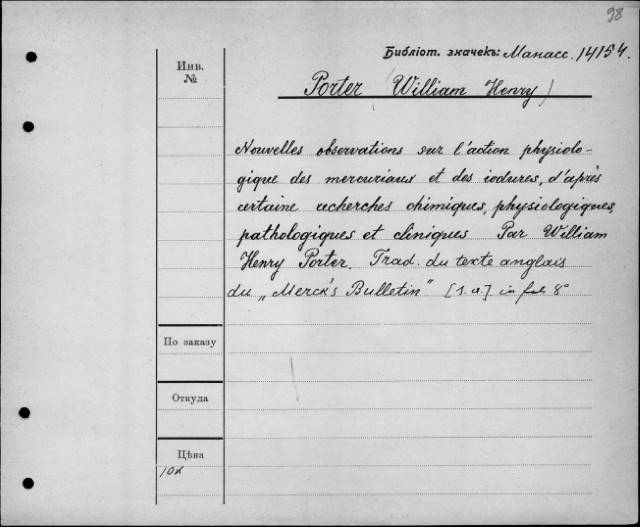 98
Библіот. значекъ: Манасс. 14154.
Инв.
№
Porter (William Henry)
Nouvelles observations sur l'action physiolo-
gique des mercuriaux et des iodures, d'après
certaine recherches chimiques, physiologiques,
pathologiques et cliniques Par William
Henry Porter. Trad. du texte anglais
du „Merck's Bulletin" [s. a.] in 8°
По заказу
Откуда
Цѣна